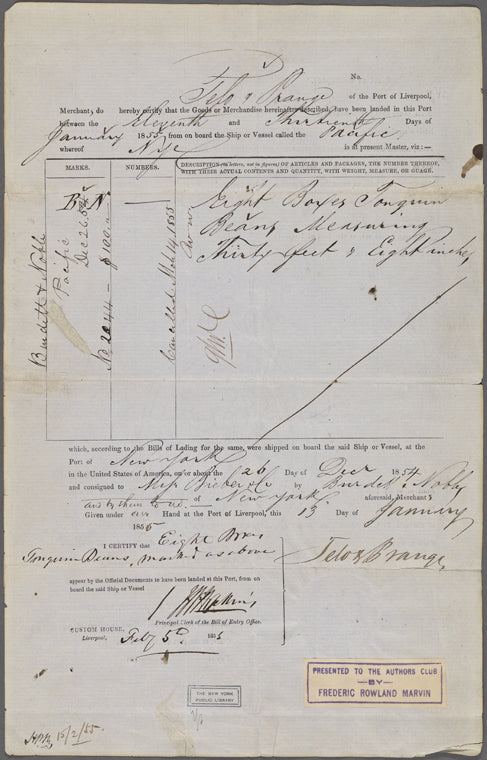 No.
Telo & Prange of the Port of Liverpool,
Merchant, do hereby certify that the Goods or Merchandise hereinafter described, have been landed in this Port
between the Eleventh and Thirteenth Days of
January 1855, from on board the Ship or Vessel called the Pacific
whereof Nye is at present Master, viz:—
MARKS. NUMBERS. DESCRIPTION (in letters, not in figures) OF ARTICLES AND PACKAGES, THE NUMBER THEREOF,
WITH THEIR ACTUAL CONTENTS AND QUANTITY, WITH WEIGHT, MEASURE, OR GUAGE.
B & N — Eight Boxes Tonquin
Beans Measuring
Thirty feet & Eight inches
Burdett & Noble
Pacific
Dec 26, 54
No 2044 — $100
Cancelled Mch 14, 1855
which, according to the Bills of Lading for the same, were shipped on board the said Ship or Vessel, at the
Port of New York
in the United States of America, on or about the 26 Day of Decr 1854
and consigned to by Burdett & Noble
and by them to us. of New York aforesaid, Merchants
Given under our Hand at the Port of Liverpool, this 13 Day of January
1855
I CERTIFY that Eight Bxs
Tonquin Beans, marked as above
Telo & Prange
appear by the Official Documents to have been landed at this Port, from on
board the said Ship or Vessel
Principal Clerk of the Bill of Entry Office.
CUSTOM HOUSE,
Liverpool, Feby 5th 1855
PRESENTED TO THE AUTHORS CLUB
—BY—
FREDERIC ROWLAND MARVIN
THE NEW YORK
PUBLIC LIBRARY
15/2/55.